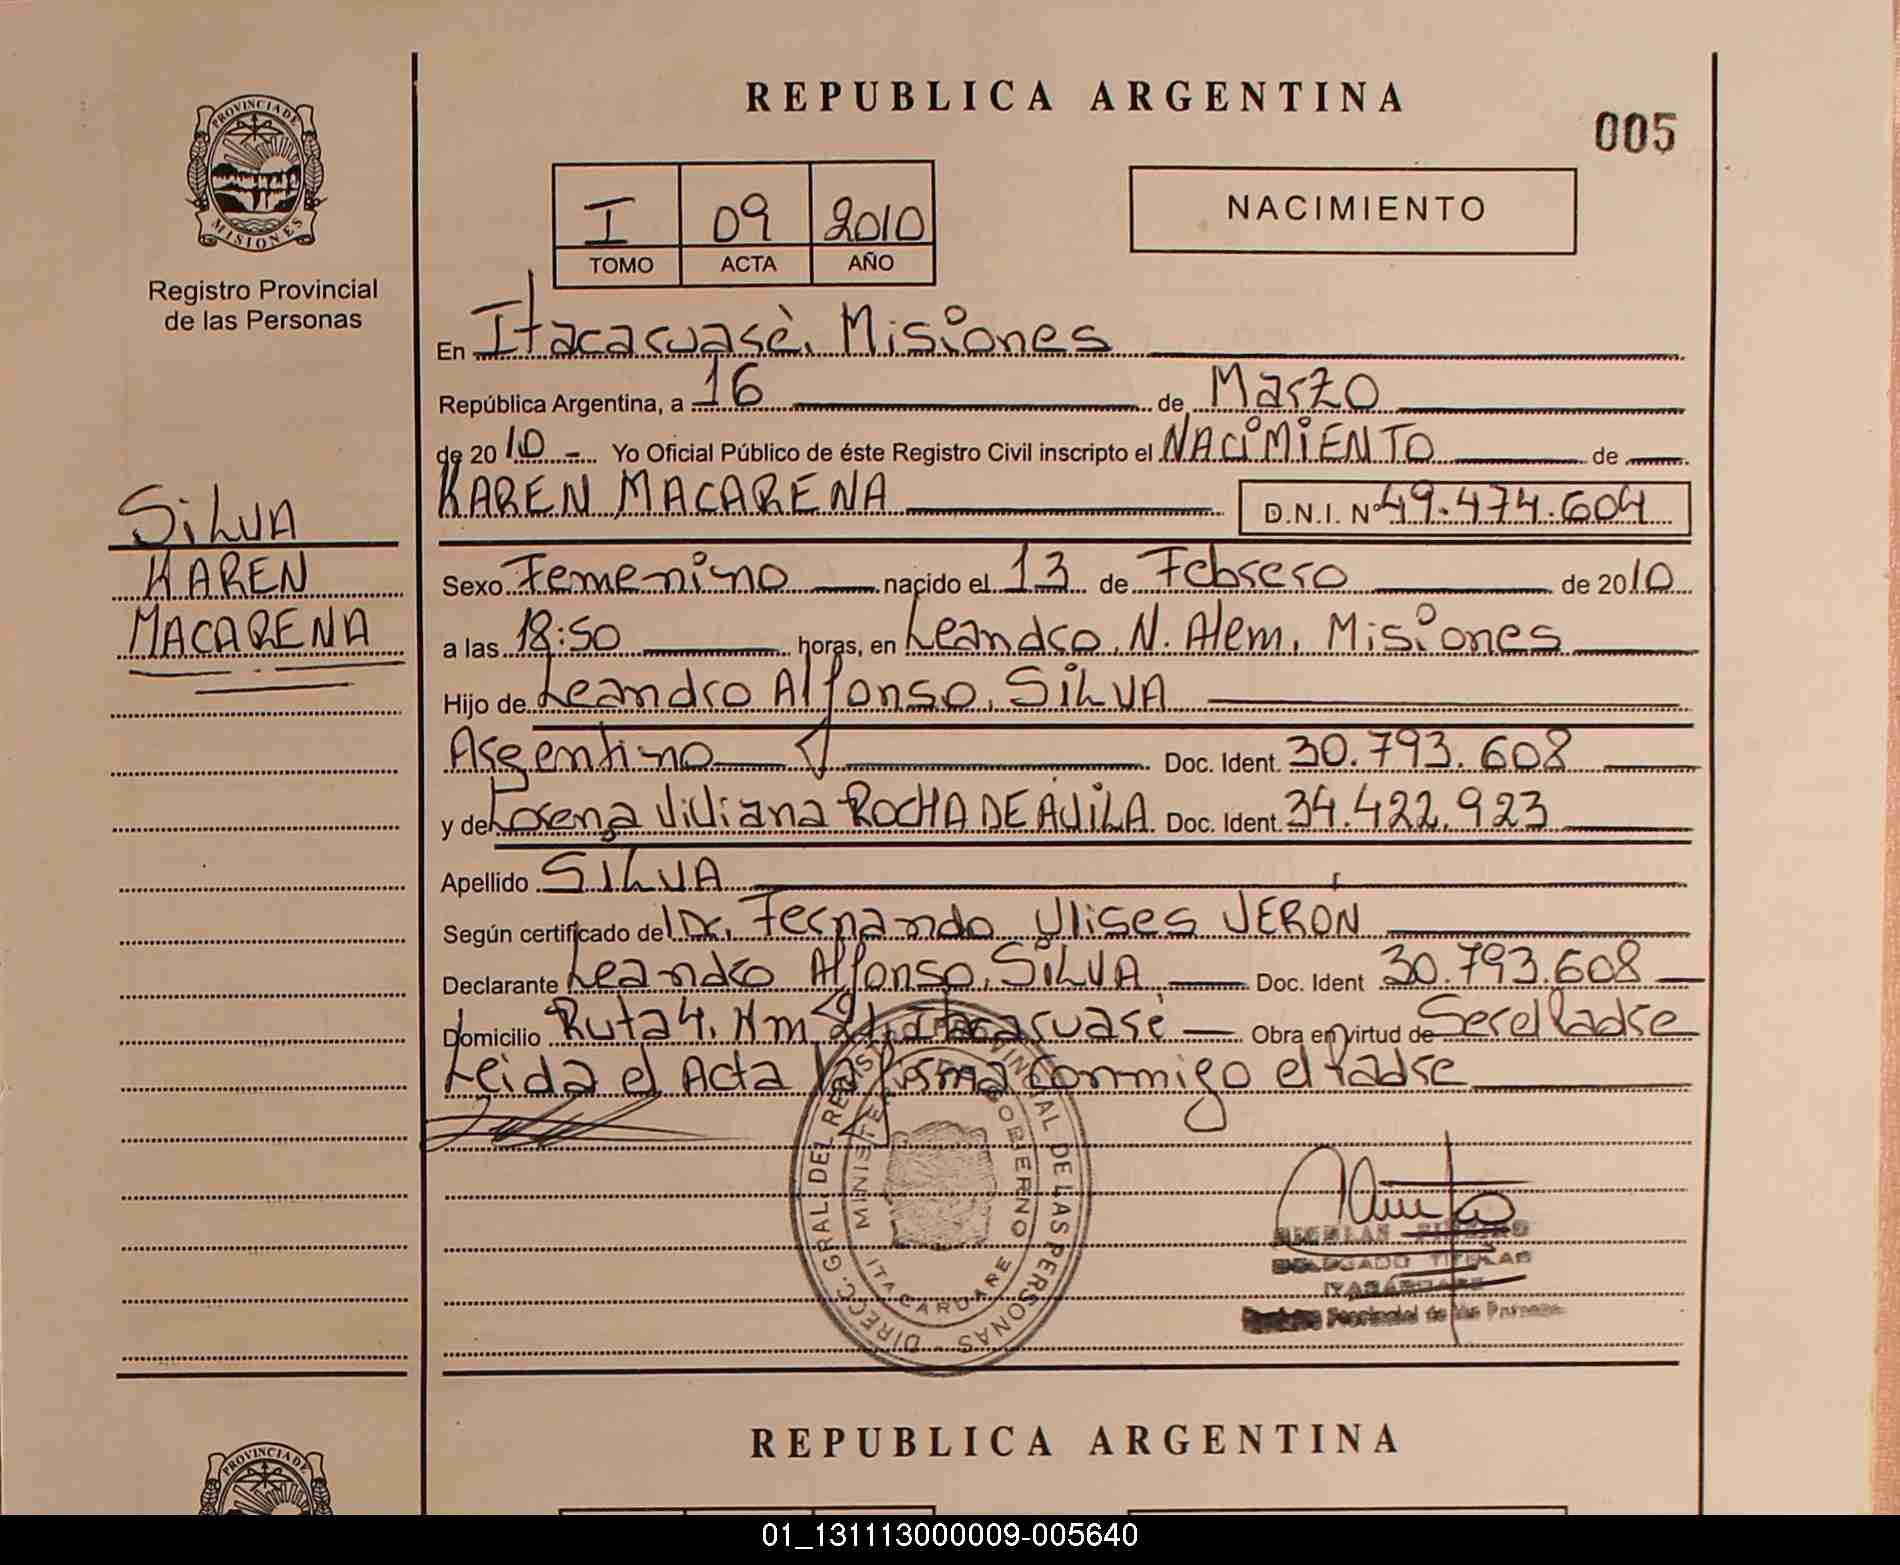 REPUBLICA ARGENTINA
005
PROVINCIA DE
MISIONES
Registro Provincial
de las Personas
I 09 2010
TOMO ACTA AÑO
NACIMIENTO
En Itacaruarè, Misiones
República Argentina, a 16 de Marzo
de 2010 - Yo Oficial Público de éste Registro Civil inscripto el NACIMIENTO de
KAREN MACARENA D.N.I. Nº 49.474.604
SILVA
KAREN
MACARENA
Sexo Femenino nacido el 13 de Febrero de 2010
a las 18:50 horas, en Leandro, N. Alem, Misiones
Hijo de Leandro Alfonso, SILVA
Argentino Doc. Ident. 30.793.608
y de Lorena Viviana ROCHA DE AVILA Doc. Ident. 34.422.923
Apellido SILVA
Según certificado del Dr. Fernando Ulises VERÓN
Declarante Leandro Alfonso, SILVA Doc. Ident 30.793.608
Domicilio Ruta 4, Km 21 Itacaruaré Obra en virtud de Ser el Padre
Leida el Acta la firma conmigo el Padre
DIRECC. GRAL. DEL REGISTRO PROVINCIAL DE LAS PERSONAS
MINISTERIO DE GOBIERNO
ITACARUARE
DELEGADO TITULAR
ITACARUARE
Registro Provincial de las Personas
REPUBLICA ARGENTINA
PROVINCIA DE
01_131113000009-005640